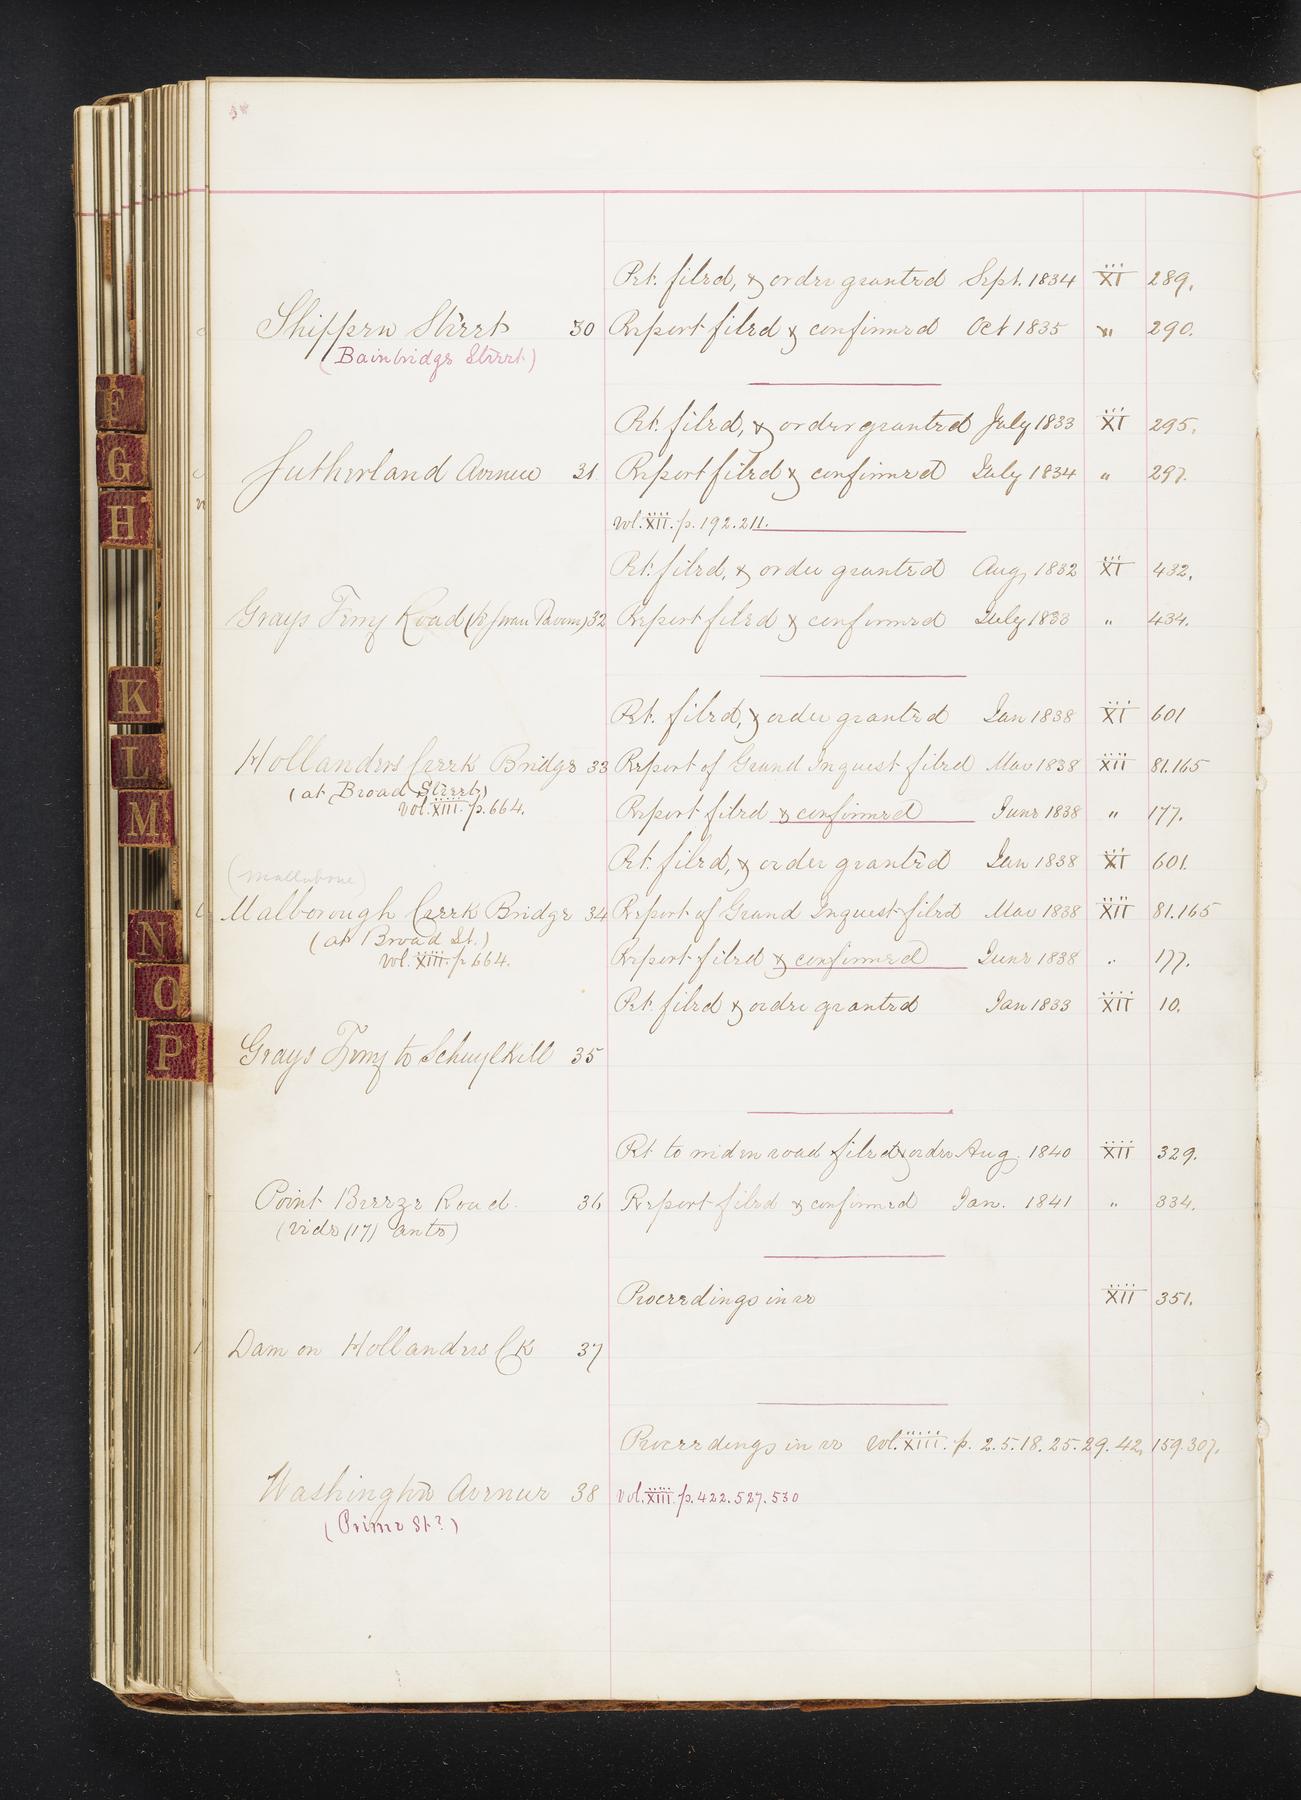 Pet. filed, & order granted Sept. 1834 XI 289.
Shippen Street 30 Report filed & confirmed Oct 1835 " 290.
(Bainbridge Street)
Pet. filed, & order granted July 1833 XI 295.
Sutherland Avenue 31 Report filed & confirmed July 1834 " 297.
vol. XII. p. 192. 211.
Pet. filed, & order granted Aug, 1832 XI 432.
Grays Ferry Road 32 Report filed & confirmed July 1833 " 434.
Pet. filed, & order granted Jan 1838 XI 601
Hollanders Creek Bridge 33 Report of Grand Inquest filed Mar 1838 XII 81.165
(at Broad Street)
vol. XIII. p. 664.
Report filed & confirmed June 1838 " 177.
Pet. filed, & order granted Jan 1838 XI 601.
Malborough Creek Bridge 34 Report of Grand Inquest filed Mar 1838 XII 81.165
(at Broad St.)
vol. XIII. p 664.
Report filed & confirmed June 1838 " 177.
Pet. filed & order granted Jan 1833 XII 10.
Grays Ferry to Schuylkill 35
Pet to widen road filed & order Aug. 1840 XII 329.
Point Breeze Road. 36 Report filed & confirmed Jan. 1841 " 334.
(vide (17) ante)
Proceedings in re XII 351.
Dam on Hollanders Ck 37
Proceedings in re vol. XIII. p. 2.5.18.25.29.42, 159.307.
Washington Avenue 38 vol. XIII p. 422. 527. 530
(Prime St?)
E
G
H
K
L
M
N
O
P